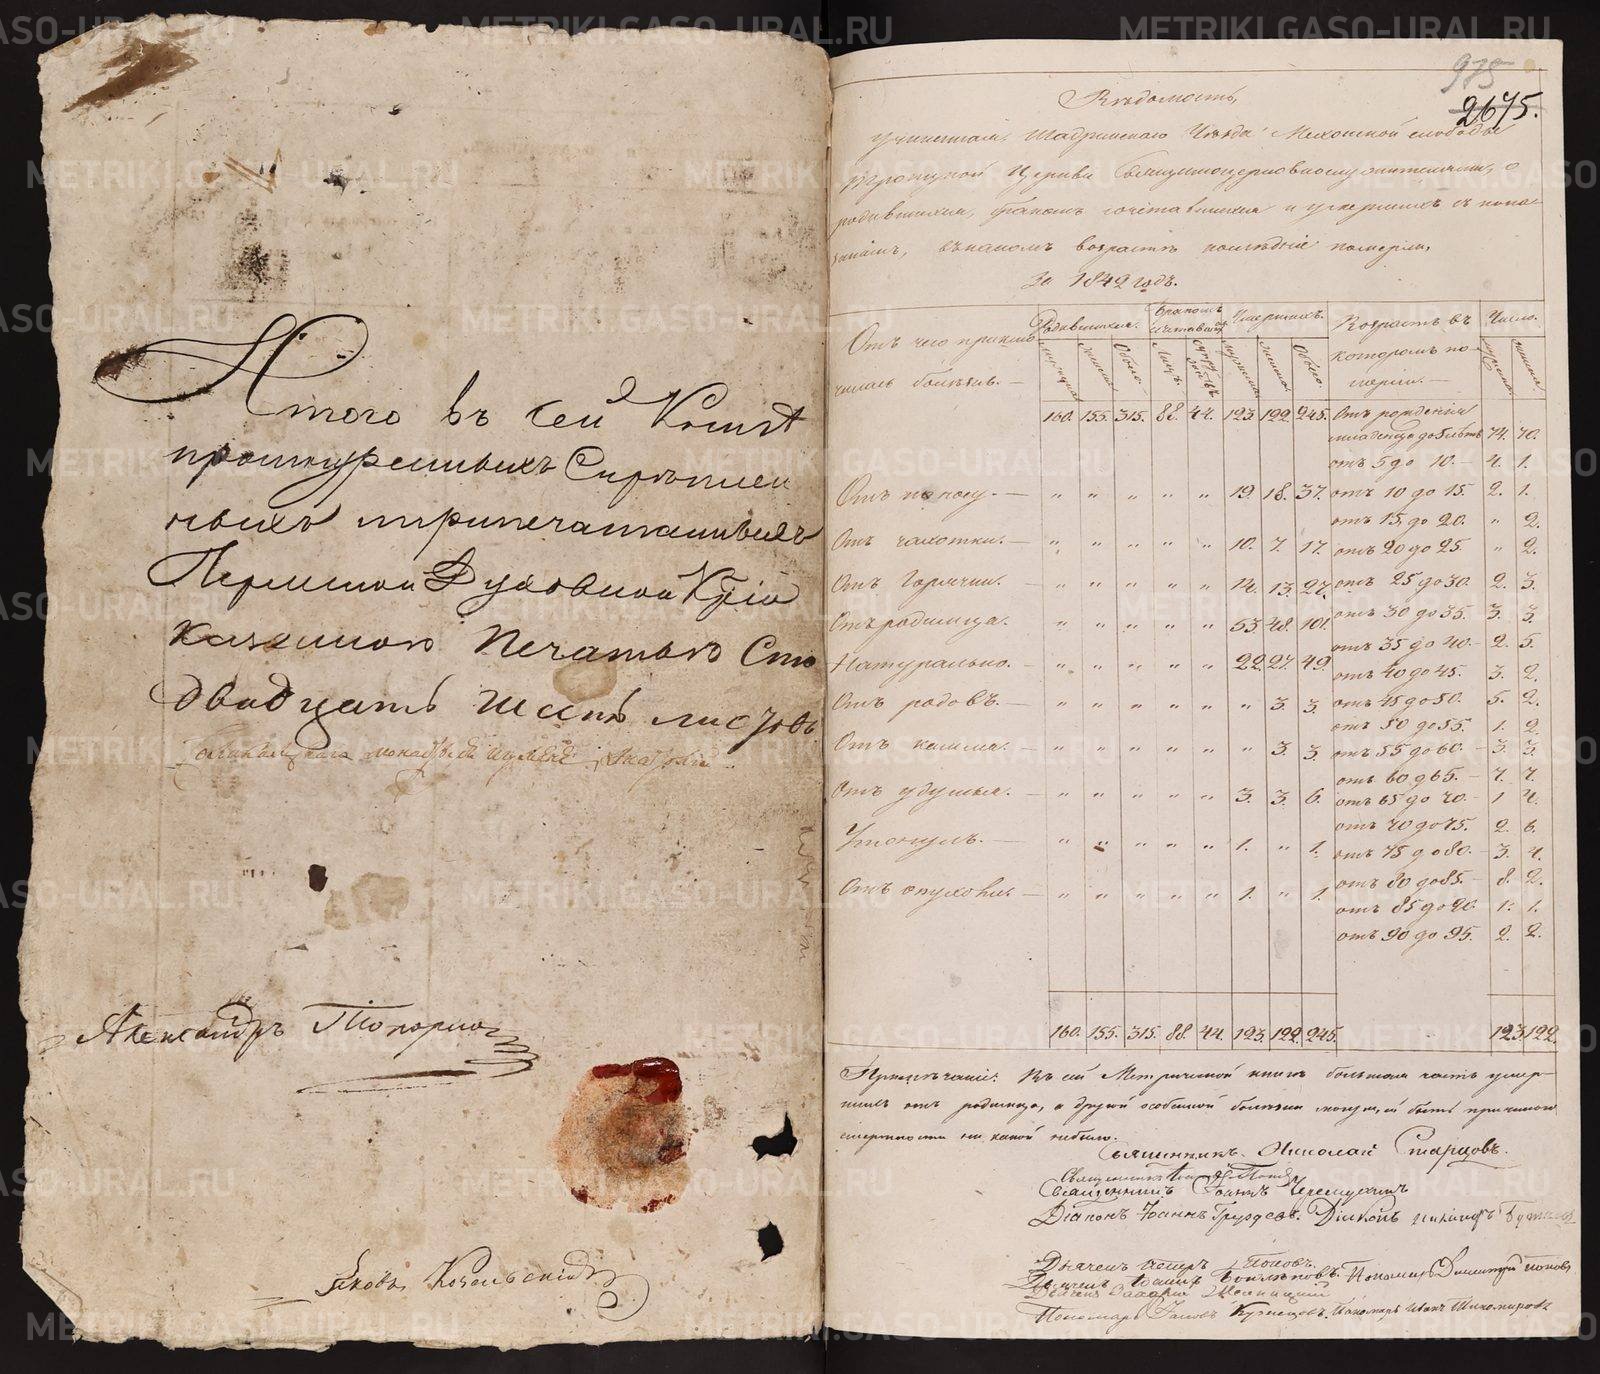 Итого въ сей Книгѣ
прошнуренныхъ Скрѣплен
ныхъ и припечатанныхъ
Пермской Духовной Кѡⷩсїи
Казенною Печатью Сто
двадцать шесть листовъ
Александръ Топорко
Яковъ Козельскій
975
2675.
Вѣдомость,
учиненная, Шадринскаго Уѣзда Мехонской слободы
Троицкой Церкви Священноцерковнослужителями, о
родившихся, бракомъ сочетавшихся и умершихъ съ пока-
заніемъ, въ какомъ возрастѣ послѣдніе померли,
За 1842 годъ.
Отъ чего приклю
чилась болѣзнь. —
Родившихся.
Бракомъ
сочетавш
Умершихъ.
Возрастъ въ
которомъ по-
мерли. —
Число.
мужеска
женска
Обоего.
Лицъ.
мужеска
женска
Обоего.
160. 155. 315. 88. 44. 123. 122. 245. Отъ рожденія
младенцо до 5 лѣтъ 74. 70.
отъ 5 до 10. — 4. 1.
Отъ поносу. — „ „ „ „ „ 19. 18. 37. отъ 10 до 15. 2. 1.
отъ 15 до 20. „ 2.
Отъ чахотки. — „ „ „ „ „ 10. 7. 17. отъ 20 до 25. „ 2.
Отъ Горячки. „ „ „ „ „ 14. 13. 27. отъ 25 до 30. 2. 3.
отъ 30 до 35. 3. 3.
Отъ родимца. „ „ „ „ „ 53. 48. 101.
отъ 35 до 40. — 2. 5.
Натурально. — „ „ „ „ „ 22. 27. 49. отъ 40 до 45. 3. 2.
Отъ родовъ. — „ „ „ „ „ „ 3. 3. отъ 45 до 50. 5. 2.
отъ 50 до 55. 1. 2.
Отъ кашля. — „ „ „ „ „ „ 3. 3. отъ 55 до 60. — 3. 3.
отъ 60 д 65. — 7. 7.
Отъ удушья. — „ „ „ „ „ 3. 3. 6. отъ 65 до 70. — 1 4.
отъ 70 до 75. 2. 6.
Утонулъ. — „ „ „ „ „ 1. „ 1. отъ 75 до 80. — 3. 4.
отъ 80 до 85. — 8. 2.
Отъ опухоли. — „ „ „ „ „ 1. „ 1. отъ 85 до 90. 1. 1.
отъ 90 до 95. 2. 2.
160. 155. 315. 88. 44. 123. 122. 245. 123 122
Примѣчаніе: Въ сей Метрической книгѣ большая часть умер-
шихъ отъ родимца, а другой особенной болѣзни могущей быть причиною
смертности ни какой небыло.
Священникъ Николай Старцовъ.
Священникъ
Священникъ Іоаннъ Черемухинъ
Діаконъ Іоаннъ Груздевъ. Діаконъ
Дьячекъ Петръ Поповъ.
Дьячекъ Іоаннъ Пономарь Димитрій Поповъ
Дьячекъ
Пономарь Іаковъ Кузнецовъ. Пономарь Иванъ Тихомировъ
METRIKI.GASO-URAL.RU